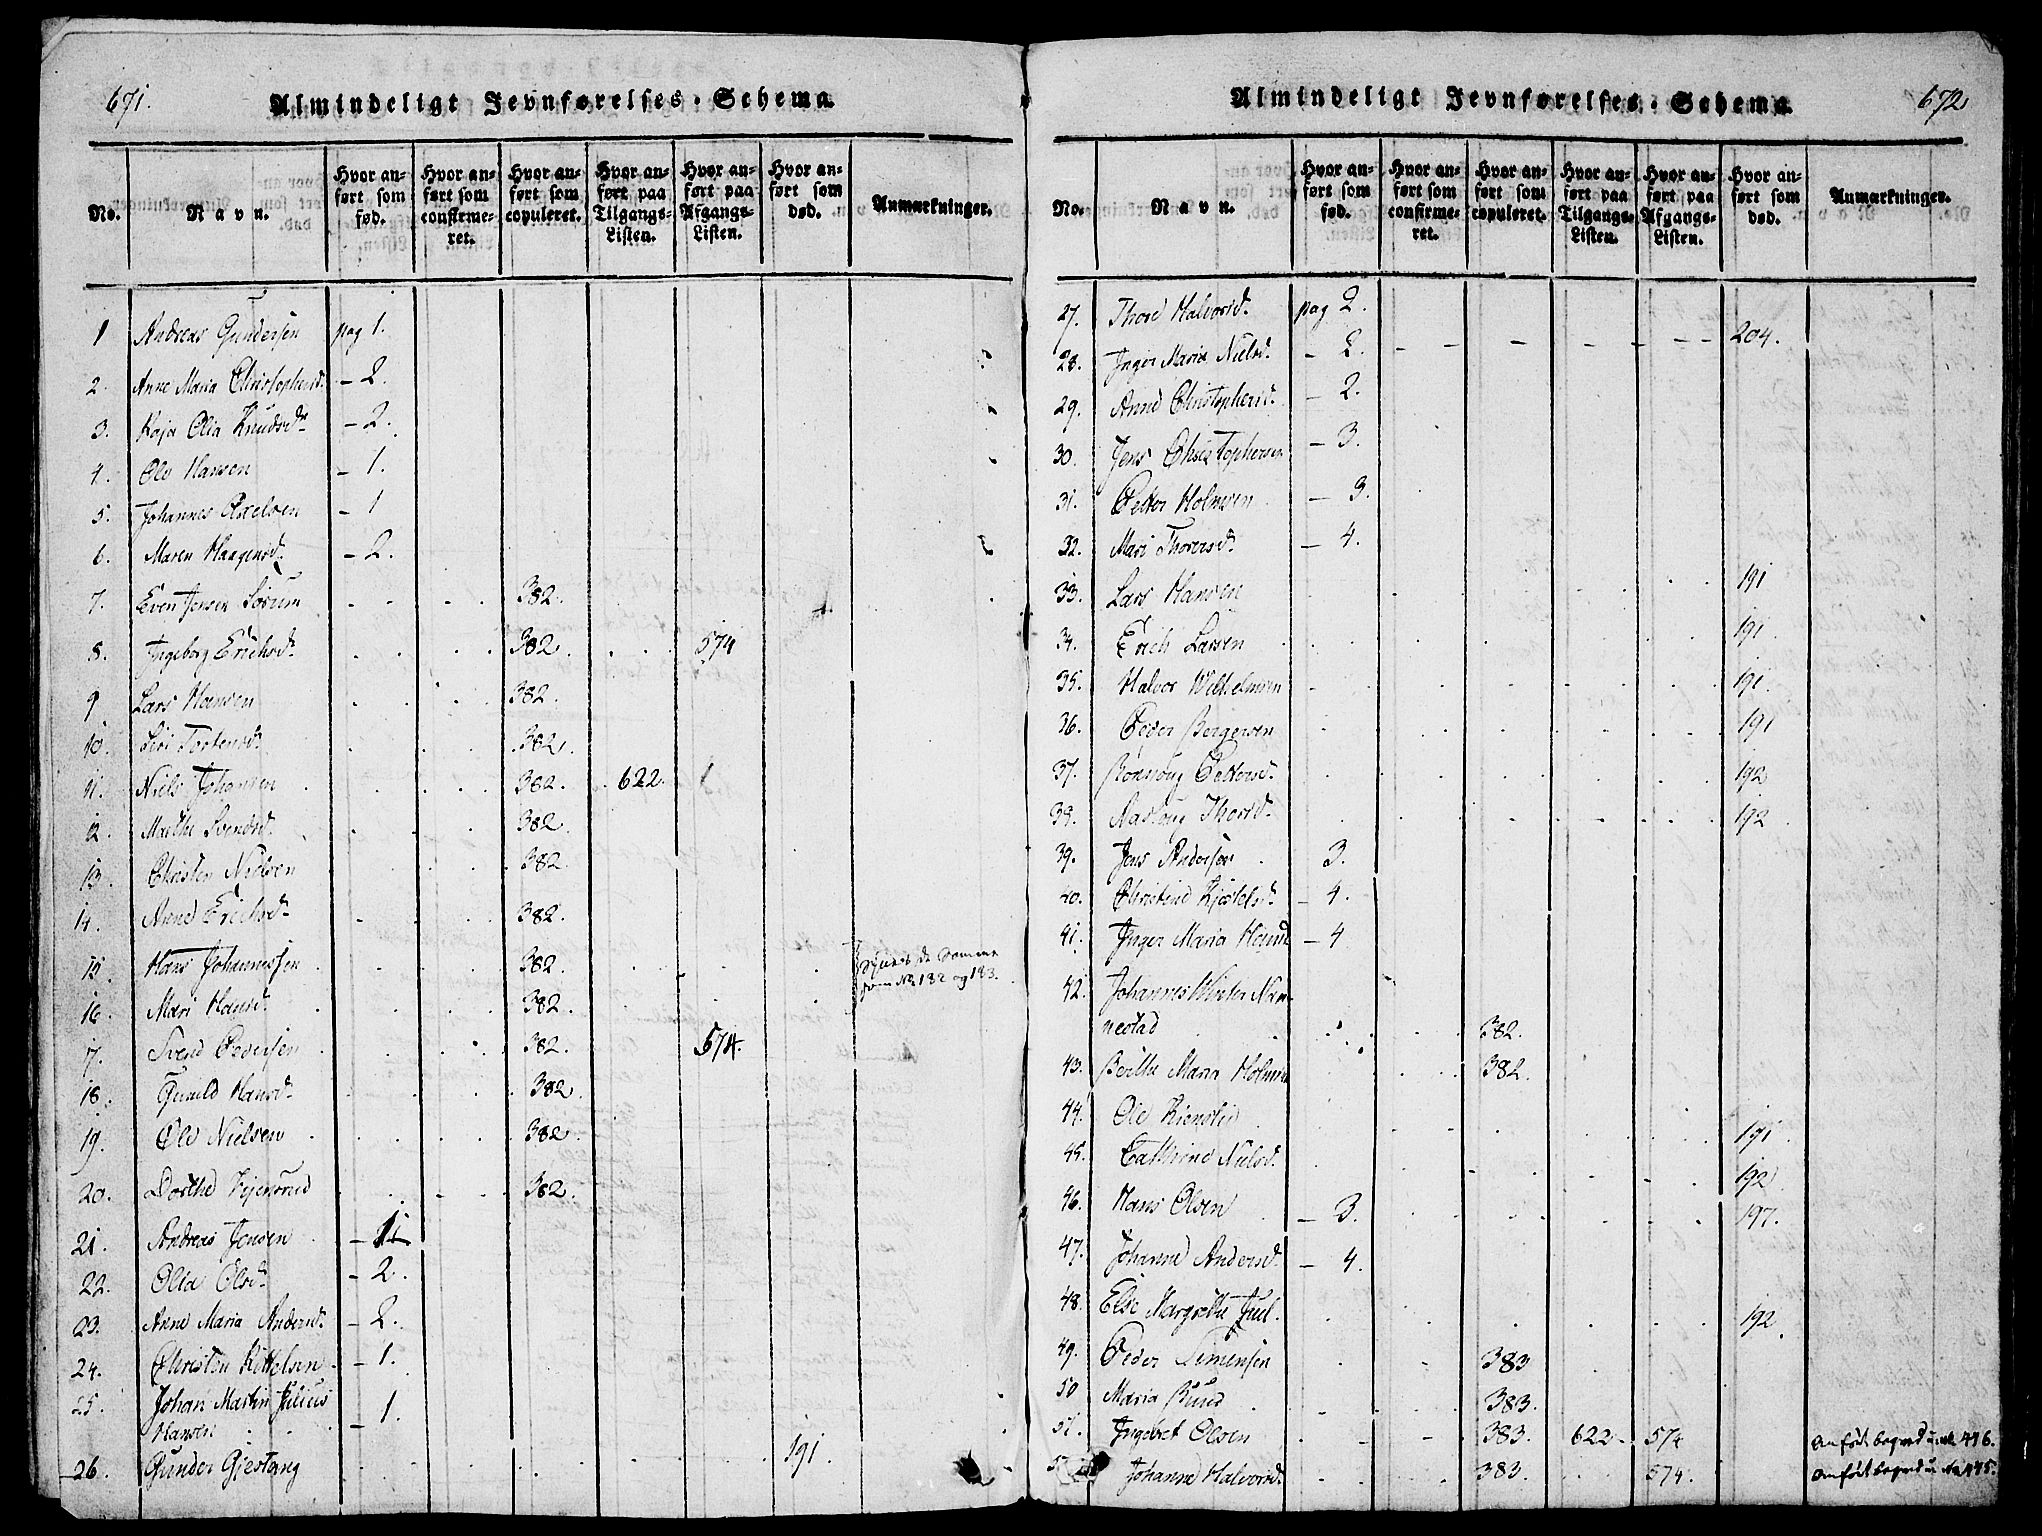 671.
Almindeligt Jevnførelses-Schema
No. Navn. Hvor anført som fød. Hvor anført som confirmeret. Hvor anført som copuleret. Hvor anført paa Tilgangs-Listen. Hvor anført paa Afgangs-Listen. Hvor anført som død. Anmærkninger.
1 Andreas Gundersen pag 1.
2. Anne Maria Christophersd. - 2.
3. Kaja Olia Knudsdr - 2.
4. Ole Hansen - 1.
5. Johannes Axelsen - 1
6. Maren Haagensd. - 2.
7. Even Jensen Sørum 382.
8. Ingeborg Erichsd. 382. 574
9 Lars Hansen 382.
10. Siri Tostensd. 382.
11. Niels Johansen 382. 622.
12. Marthe Svendsd. 382.
13. Christen Nielsen 382.
14. Anne Erichsd. 382.
15. Hans Johannessen 382. de samme som No 182 og 183.
16. Mari Hansd. 382.
17. Svend Pedersen 382. 574.
18. Gunild Hansd. 382.
19. Ole Nielsen 382.
20. Dorthe Kjensrud 382.
21. Andreas Jensen - 1.
22. Olia Olsd. - 2.
23. Anne Maria Andersd. - 2.
24. Christen Kittelsen - 1.
25. Johan Martin Julius
Hansen - 1.
26. Gunder Gjestang 191.
672
Almindeligt Jevnførelses-Schema
No. Navn. Hvor anført som fød. Hvor anført som confirmeret. Hvor anført som copuleret. Hvor anført paa Tilgangs-Listen. Hvor anført paa Afgangs-Listen. Hvor anført som død. Anmærkninger.
27. Thore Halvorsd. pag 2.
28. Inger Maria Nielsd. - 2. 204.
29. Anne Christophersd. - 2.
30. Jens Christophersen - 3.
31. Petter Holmsen - 3.
32. Mari Thoresd. - 4.
33. Lars Hansen 191
34. Erich Larsen 191
35. Halvor Wilhelmsen 191.
36. Peder Bergersen 191
37. Rønnoug Pettersd. 192
38. Aasloug Thorsd. 192
39. Jens Andersen 3.
40. Christine Kjøstelsd. - 4.
41. Inger Maria Hansd. - 4
42. Johannes Winter Nan-
nestad 382.
43. Berthe Maria Holmsen 382.
44. Ole Kienstie 191.
45. Cathrine Nielsd. 192.
46. Hans Olsen - 3. 197.
47. Johanne Andersd. - 4.
48. Else Margrethe Juel. 192
49. Peder Simensen 383
50 Maria Rund 383.
51. Ingebret Olsen 383. 622. 574 Anført bagved u. No 446.
Johanne Halvorsd. 383. 574. Anført bagved u. No 445.